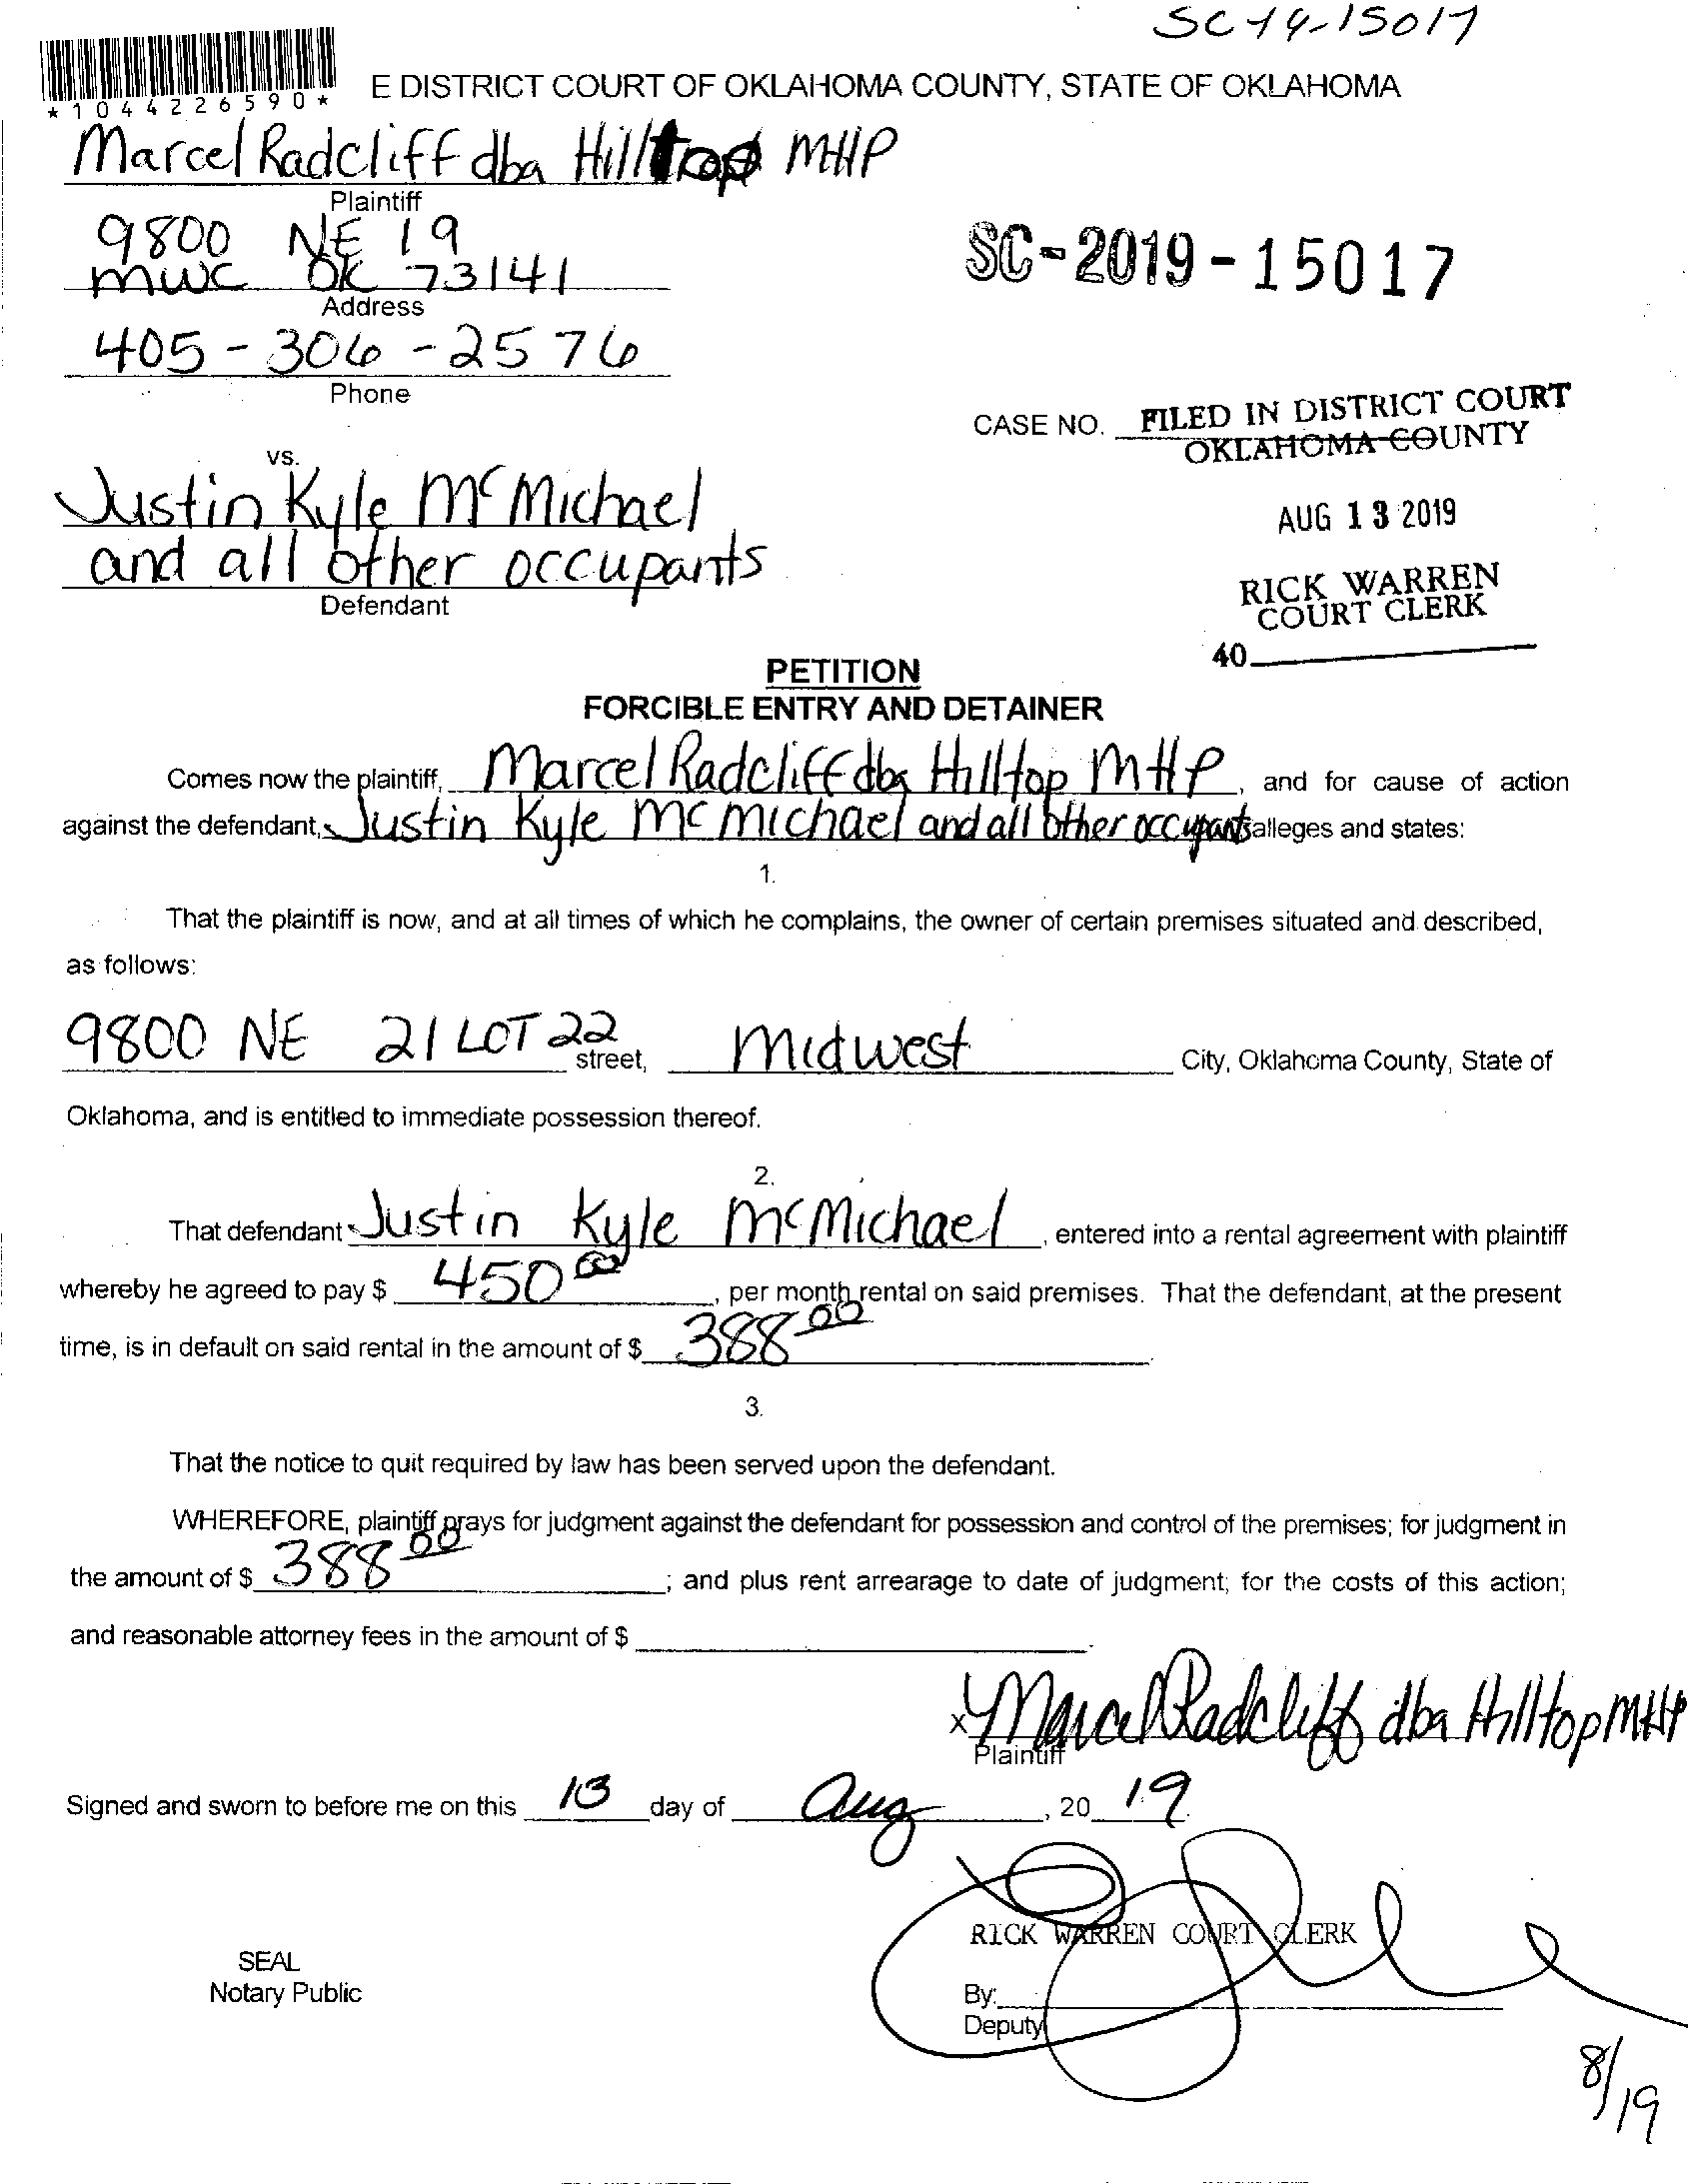 SC-19-15017
*1044226590*
E DISTRICT COURT OF OKLAHOMA COUNTY, STATE OF OKLAHOMA
Marcel Radcliff dba Hilltop MHP
Plaintiff
9800 NE 19
MWC OK 73141
Address
SC-2019-15017
405-306-2576
Phone
CASE NO. FILED IN DISTRICT COURT
OKLAHOMA COUNTY
vs.
Justin Kyle McMichael
and all other occupants
Defendant
AUG 13 2019
RICK WARREN
COURT CLERK
40
PETITION
FORCIBLE ENTRY AND DETAINER
Comes now the plaintiff, Marcel Radcliff dba Hilltop MHP, and for cause of action
against the defendant, Justin Kyle McMichael and all other occupants alleges and states:
1.
That the plaintiff is now, and at all times of which he complains, the owner of certain premises situated and described,
as follows:
9800 NE 21 LOT 22 street, Midwest City, Oklahoma County, State of
Oklahoma, and is entitled to immediate possession thereof.
2.
That defendant Justin Kyle McMichael, entered into a rental agreement with plaintiff
whereby he agreed to pay $ 450.00, per month rental on said premises. That the defendant, at the present
time, is in default on said rental in the amount of $ 388.00.
3.
That the notice to quit required by law has been served upon the defendant.
WHEREFORE, plaintiff prays for judgment against the defendant for possession and control of the premises; for judgment in
the amount of $ 388.00; and plus rent arrearage to date of judgment; for the costs of this action;
and reasonable attorney fees in the amount of $
x Marcel Radcliff dba Hilltop MHP
Plaintiff
Signed and sworn to before me on this 13 day of Aug, 20 19.
RICK WARREN COURT CLERK
SEAL
Notary Public
By:
Deputy
8/19